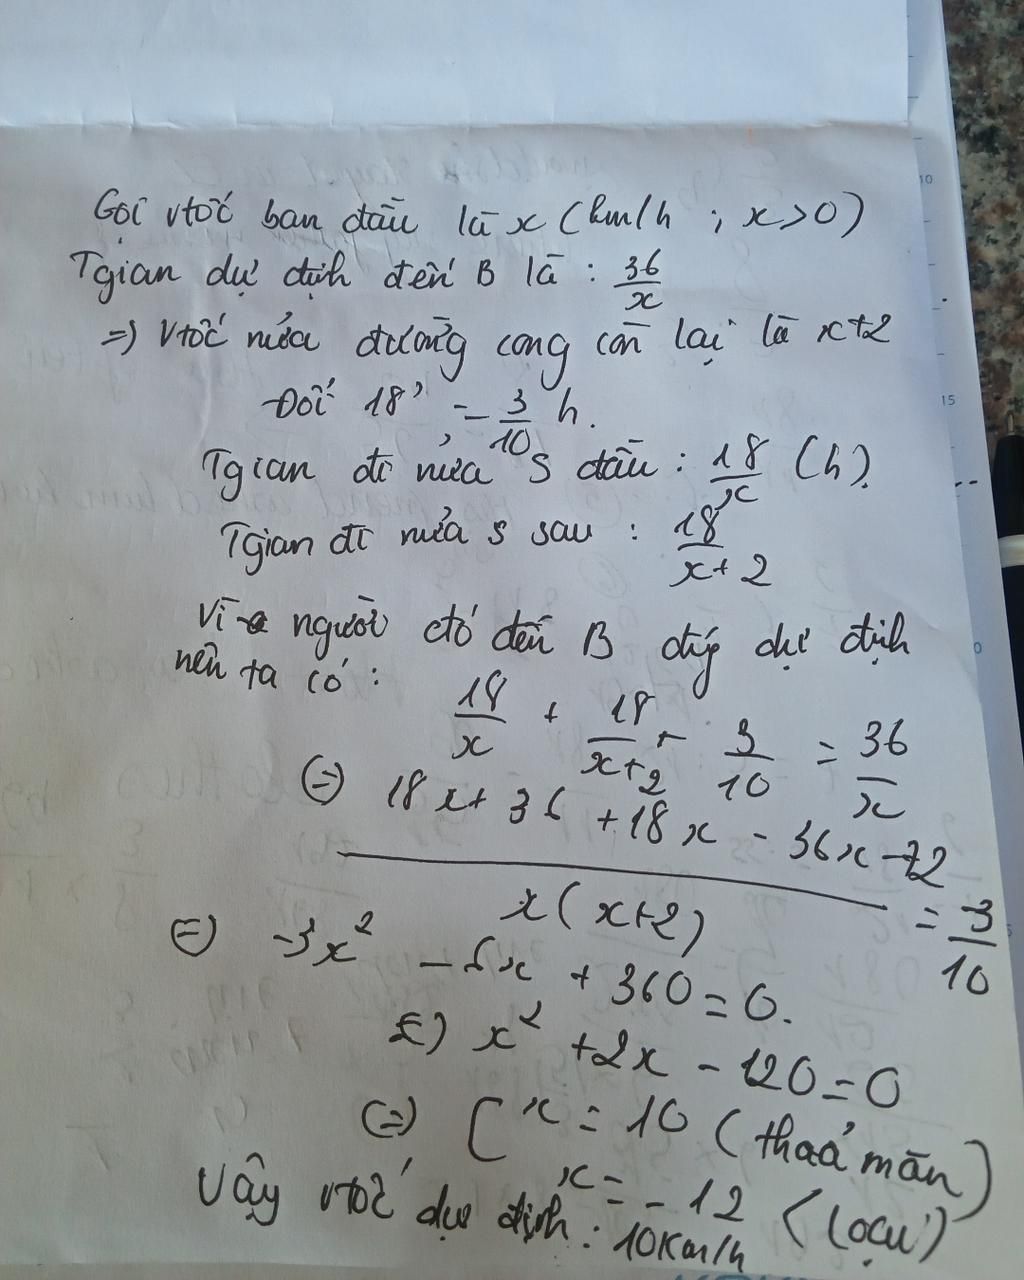 Gọi vtốc ban đầu là x (km/h ; x>0)
Tgian dự định đến B là : 36/x
=) Vtốc nửa đường cong còn lại là x+2
Đổi 18' = 3/10 h.
Tgian đi nửa S đầu : 18/x (h).
Tgian đi nửa s sau : 18/(x+2)
Vì người đó đến B đúg dự định
nên ta có :
18/x + 18/(x+2) + 3/10 = 36/x
(=) (18x + 36 + 18x - 36x - 72)/(x(x+2)) = -3/10
(=) -3x² - 6x + 360 = 0.
(=) x² + 2x - 120 = 0
(=) [ x = 10 (thoả mãn)
x = - 12 (loại)
Vậy vtốc dự định : 10km/h